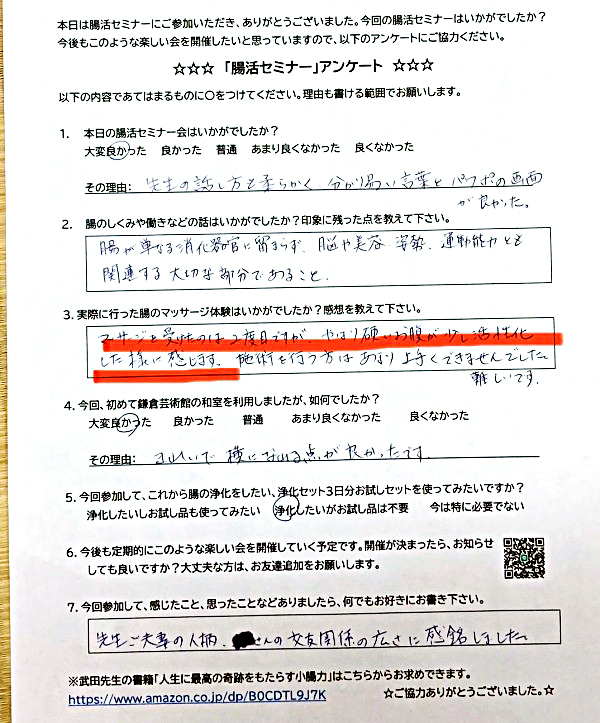 本日は腸活セミナーにご参加いただき、ありがとうございました。今回の腸活セミナーはいかがでしたか？
今後もこのような楽しい会を開催したいと思っていますので、以下のアンケートにご協力ください。
☆☆☆「腸活セミナー」アンケート ☆☆☆
以下の内容であてはまるものに〇をつけてください。理由も書ける範囲でお願いします。
1. 本日の腸活セミナー会はいかがでしたか？
大変良かった 良かった 普通 あまり良くなかった 良くなかった
その理由: 先生の話し方も柔らかく、分かり易い言葉とパワポの画面
が良かった。
2. 腸のしくみや働きなどの話はいかがでしたか？印象に残った点を教えて下さい。
腸が単なる消化器官に留まらず、脳や美容、姿勢、運動能力とも
関連する大切な部分であること、
3. 実際に行った腸のマッサージ体験はいかがでしたか？感想を教えて下さい。
マッサージを受けたのは2度目ですが、やはり硬いお腹が少し活性化
した様に感じます。施術を行う方はあまり上手くできませんでした
難しいです.
4. 今回、初めて鎌倉芸術館の和室を利用しましたが、如何でしたか？
大変良かった 良かった 普通 あまり良くなかった 良くなかった
その理由: きれいで横になれる点が良かったです.
5. 今回参加して、これから腸の浄化をしたい、浄化セット3日分お試しセットを使ってみたいですか？
浄化したいしお試し品も使ってみたい 浄化したいがお試し品は不要 今は特に必要でない
6. 今後も定期的にこのような楽しい会を開催していく予定です。開催が決まったら、お知らせ
しても良いですか？大丈夫な方は、お友達追加をお願いします。
7. 今回参加して、感じたこと、思ったことなどありましたら、何でもお好きにお書き下さい。
先生ご夫妻の人柄、さんの交友関係の広さに感銘しました
※武田先生の書籍「人生に最高の奇跡をもたらす小腸力」はこちらからお求めできます。
https://www.amazon.co.jp/dp/B0CDTL9J7K ☆ご協力ありがとうございました。☆